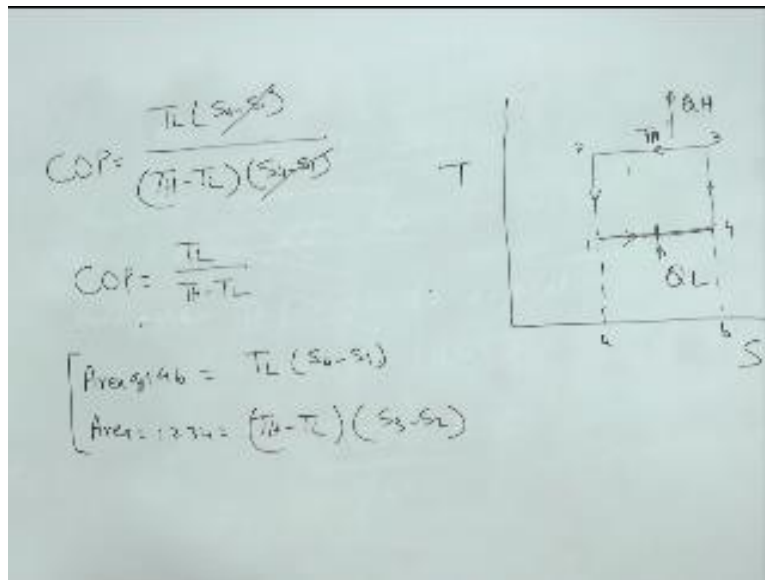 COP = TL (S4-S1) / (TH-TL) (S4-S1)
COP = TL / TH-TL
Area a14b = TL (S4-S1)
Area = 1234 = (TH-TL) (S3-S2)
QH
2 TH 3
T
1 4
QL
a b
S